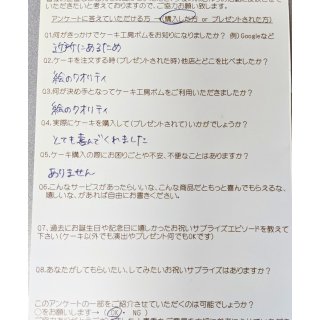 いただきたいと考えておりますので、ご協力お願い致します。
アンケートに答えていただける方 (購入した方 or プレゼントされた方)
Q1.何がきっかけでケーキ工房ボムをお知りになりましたか? 例)Googleなど
近所にあるため
Q2.ケーキを注文する時(プレゼントされた時)他店とどこを比べましたか?
絵のクオリティ
Q3.何が決め手となってケーキ工房ボムをご利用いただきましたか?
絵のクオリティ
Q4.実際にケーキを購入して(プレゼントされて)いかがでしょうか?
とても喜んでくれました
Q5.ケーキ購入の際にお困りごとや不安、不便なことはありますか?
ありません
Q6.こんなサービスがあったらいいな、こんな商品だともっと喜んでもらえるな、
嬉しいな、があれば自由にお書きください。
Q7.過去にお誕生日や記念日に嬉しかったお祝いサプライズエピソードを教えて
下さい(ケーキ以外でも演出やプレゼント何でもOKです)
Q8.あなたがしてもらいたい、してみたいお祝いサプライズはありますか?
このアンケートの一部をご紹介させていただくのは可能でしょうか?
○をお願いします→ (OK ・ NG )